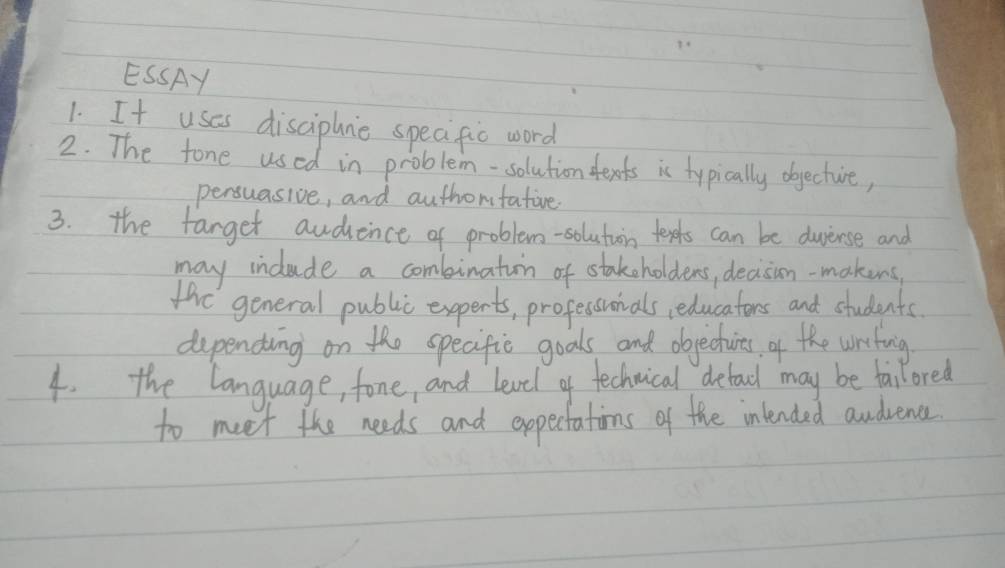 ESSAY
1. It uses discipline specific word
2. The tone used in problem-solution texts is typically objective,
persuasive, and authoritative.
3. the target audience of problem-solution texts can be diverse and
may include a combination of stakeholders, decision-makers,
the general public experts, professionals, educators and students.
depending on the specific goals and objectives of the writing.
4. the language, tone, and level of technical detail may be tailored
to meet the needs and expectations of the intended audience.